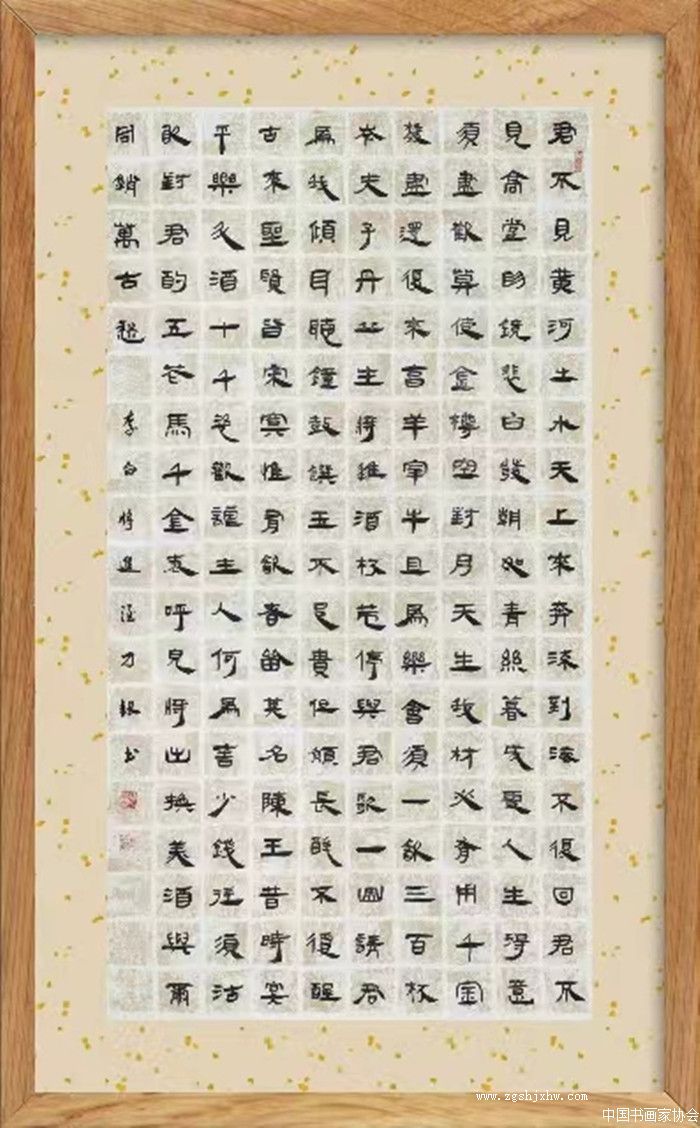 君不見黃河之水天上來奔流到海不復回君不
見高堂明鏡悲白發朝如青絲暮成雪人生得意
須盡歡莫使金樽空對月天生我材必有用千金
散盡還復來烹羊宰牛且為樂會須一飲三百杯
岑夫子丹丘生將進酒杯莫停與君歌一曲請君
為我傾耳聽鐘鼓饌玉不足貴但願長醉不復醒
古來聖賢皆寂寞惟有飲者留其名陳王昔時宴
平樂斗酒十千恣歡謔主人何為言少錢徑須沽
取對君酌五花馬千金裘呼兒將出換美酒與爾
同銷萬古愁 李白將進酒 力書
www.zgshjxhw.com
中国书画家协会